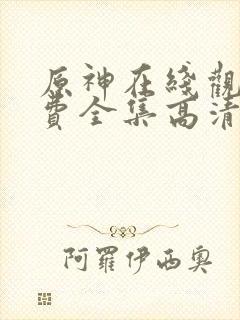 原神在綫觀
費全集高清
阿羅伊西奧